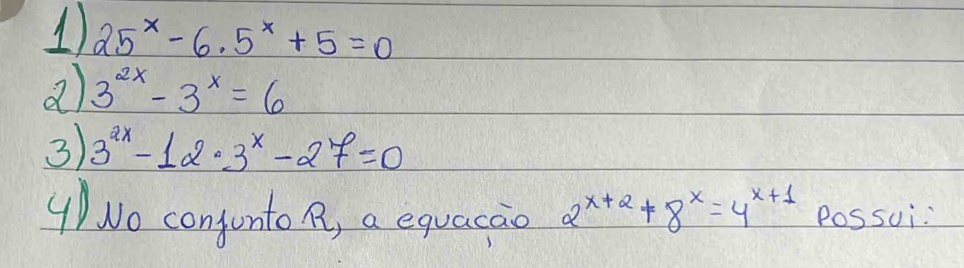 1) 25^x - 6.5^x + 5 = 0
2) 3^2x - 3^x = 6
3) 3^2x - 12 · 3^x - 27 = 0
4) No conjunto R, a equação 2^x+2 + 8^x = 4^x+1 possui: